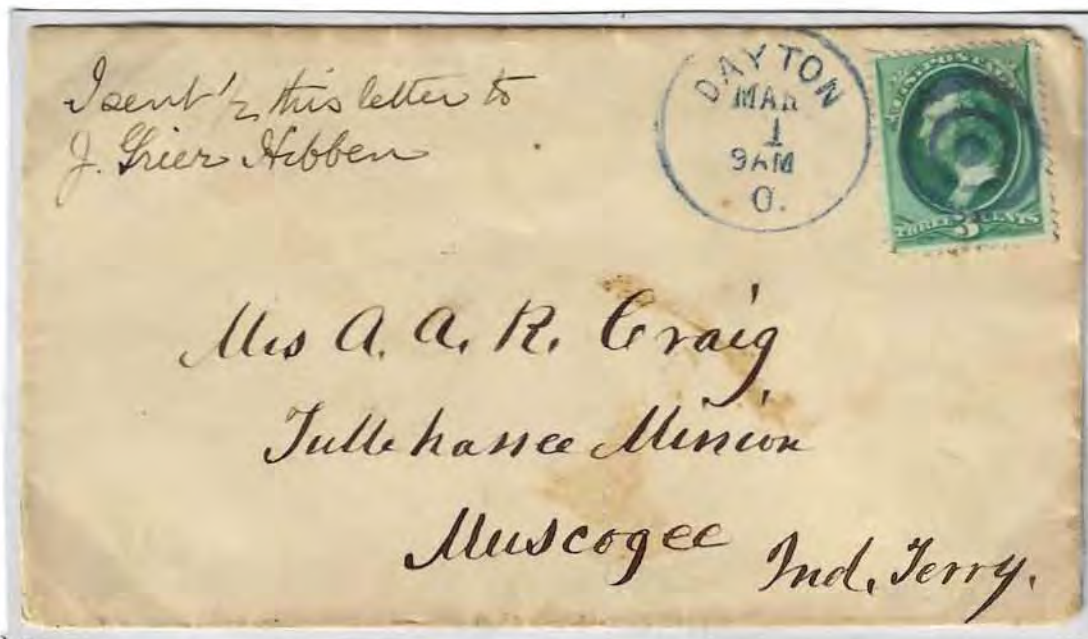 I sent 1/2 this letter to
J. Grier Hibben
DAYTON
MAR
1
9 AM
O.
U.S. POSTAGE
THREE 3 CENTS
Mrs A. A. R. Craig
Tullehassee Mission
Muscogee Ind. Terry.